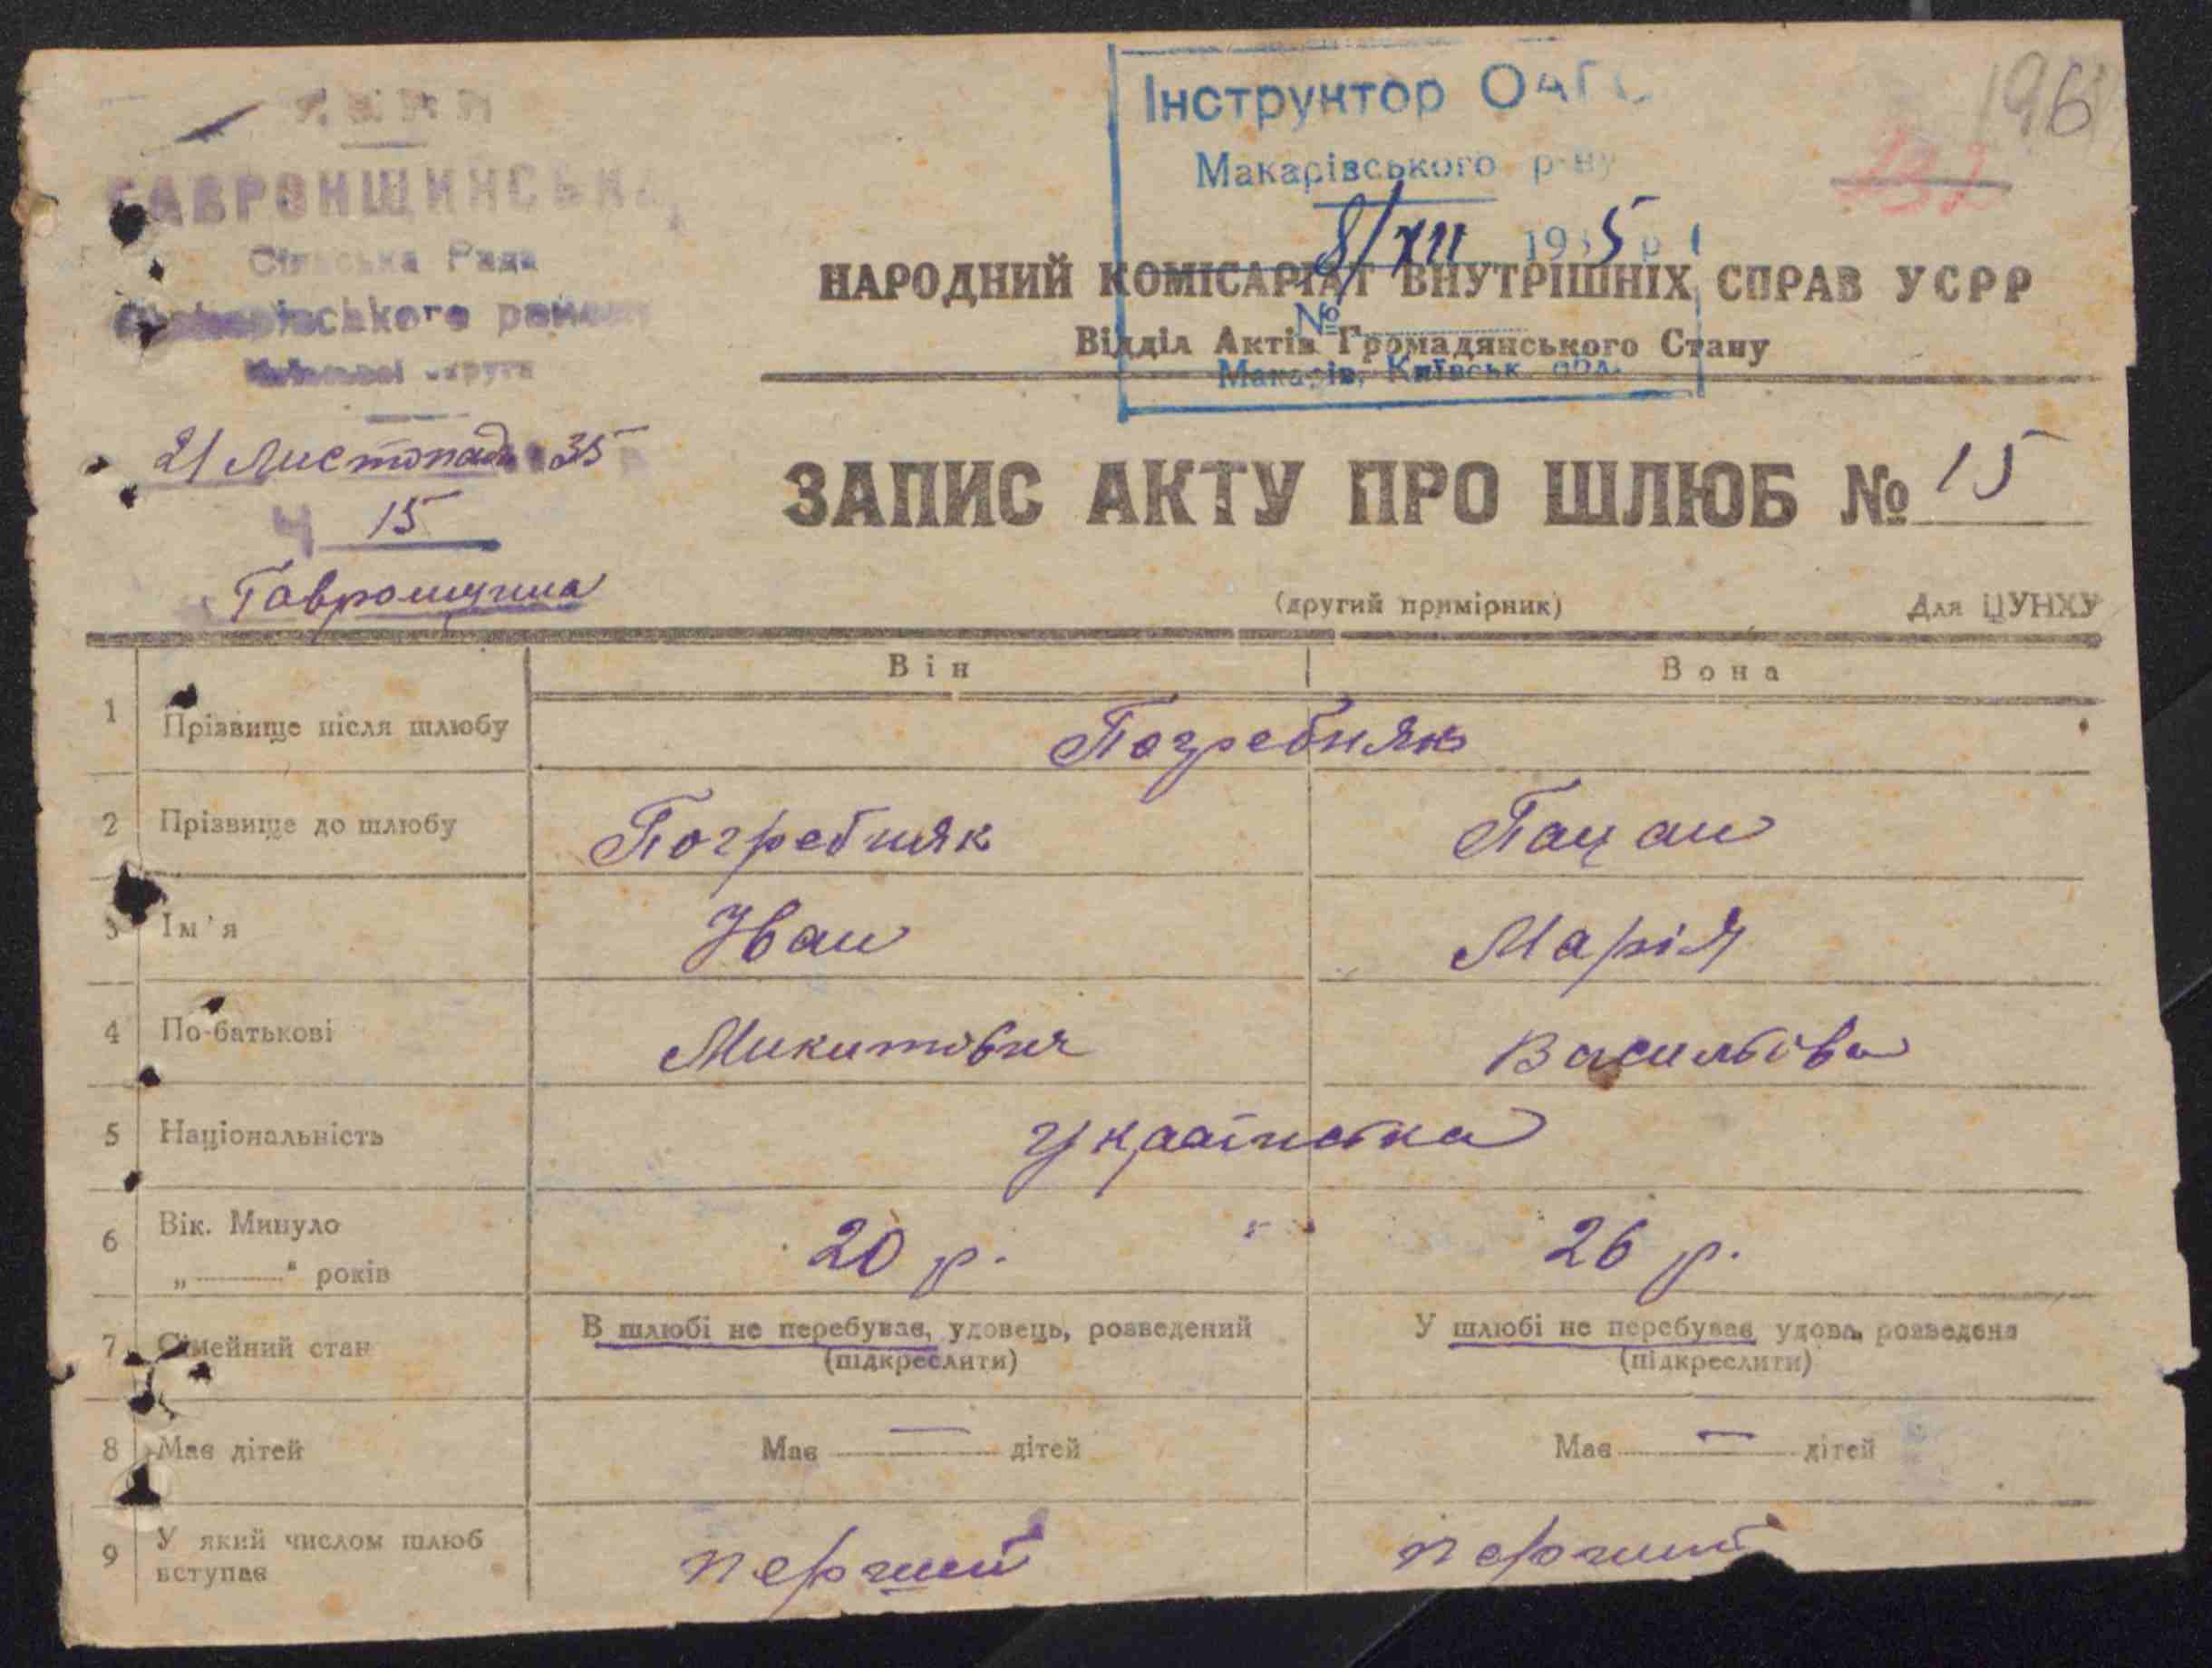 ГАВРОНЩИНСЬКА
Сільська Рада
району
округи
21 Листопада 35
Ч 15
Гавронщина
Інструктор ОАГС
Макарівського р-ну
8/XII 1935 р
№
Макарів, Київськ. обл.
196
232
НАРОДНИЙ КОМІСАРІАТ ВНУТРІШНІХ СПРАВ УСРР
Відділ Актів Громадянського Стану
ЗАПИС АКТУ ПРО ШЛЮБ № 15
(другий примірник) Для ЦУНХУ
Він Вона
1 Прізвище після шлюбу Погребняк
2 Прізвище до шлюбу Погребняк Пацан
3 Ім'я Иван Марія
4 По-батькові Микитович Васильівна
5 Національність Українська
6 Вік. Минуло
„———" років 20 р. 26 р.
7 Сімейний стан В шлюбі не перебуває, удовець, розведений У шлюбі не перебуває удова, розведена
(підкреслити) (підкреслити)
8 Має дітей Має — дітей Має — дітей
9 У який числом шлюб
вступає перший перший